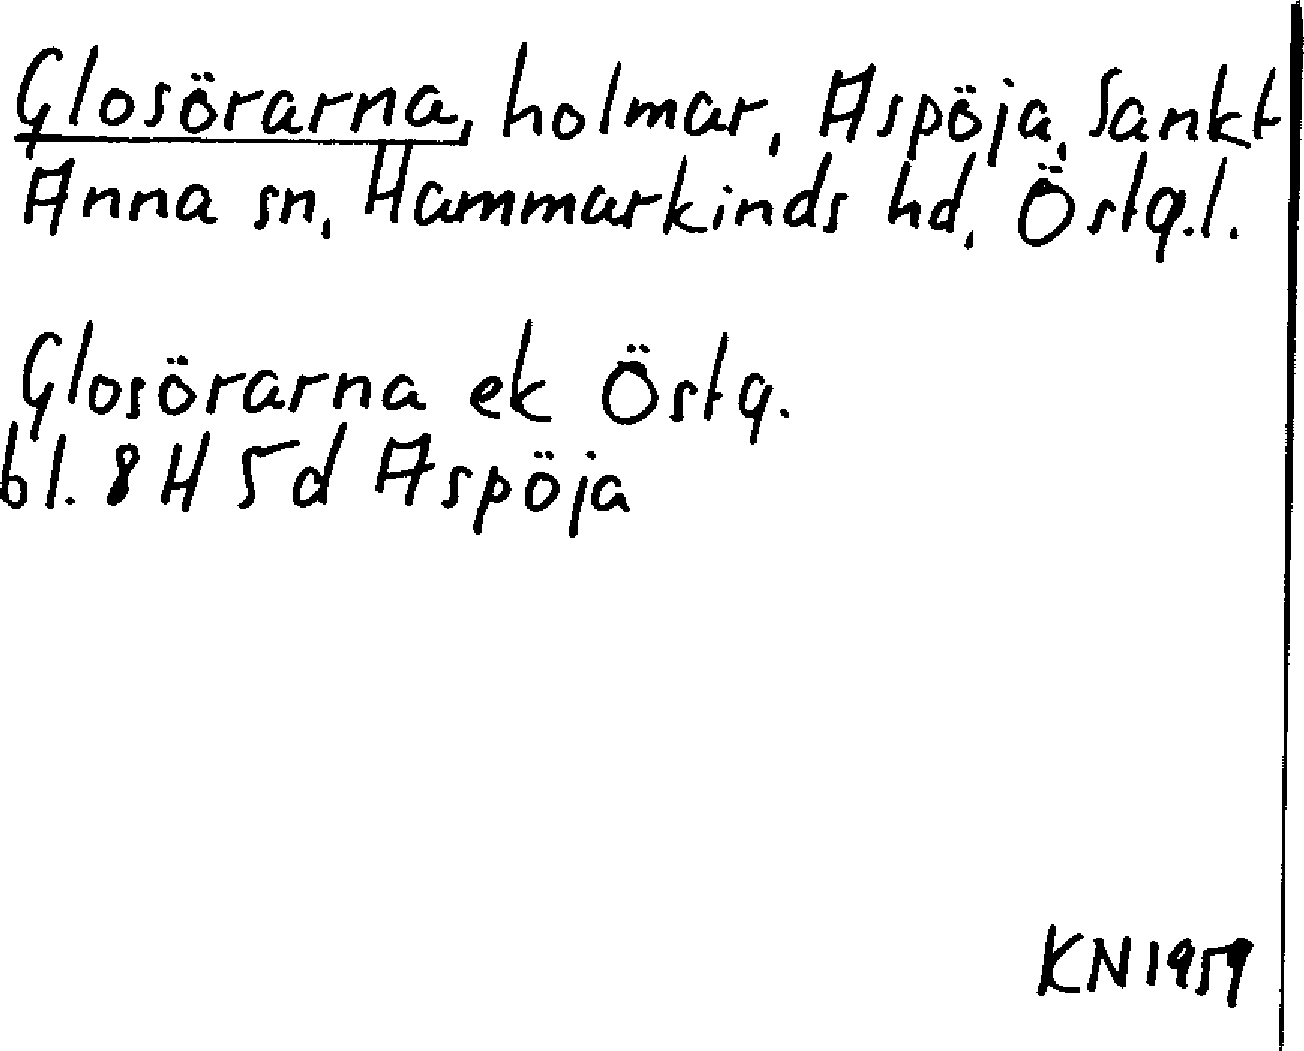 Glosörarna, holmar, Aspöja, Sankt
Anna sn, Hammarkinds hd, Östg.l.
Glosörarna ek Östg.
bl. 8 H 5d Aspöja
KN 1959